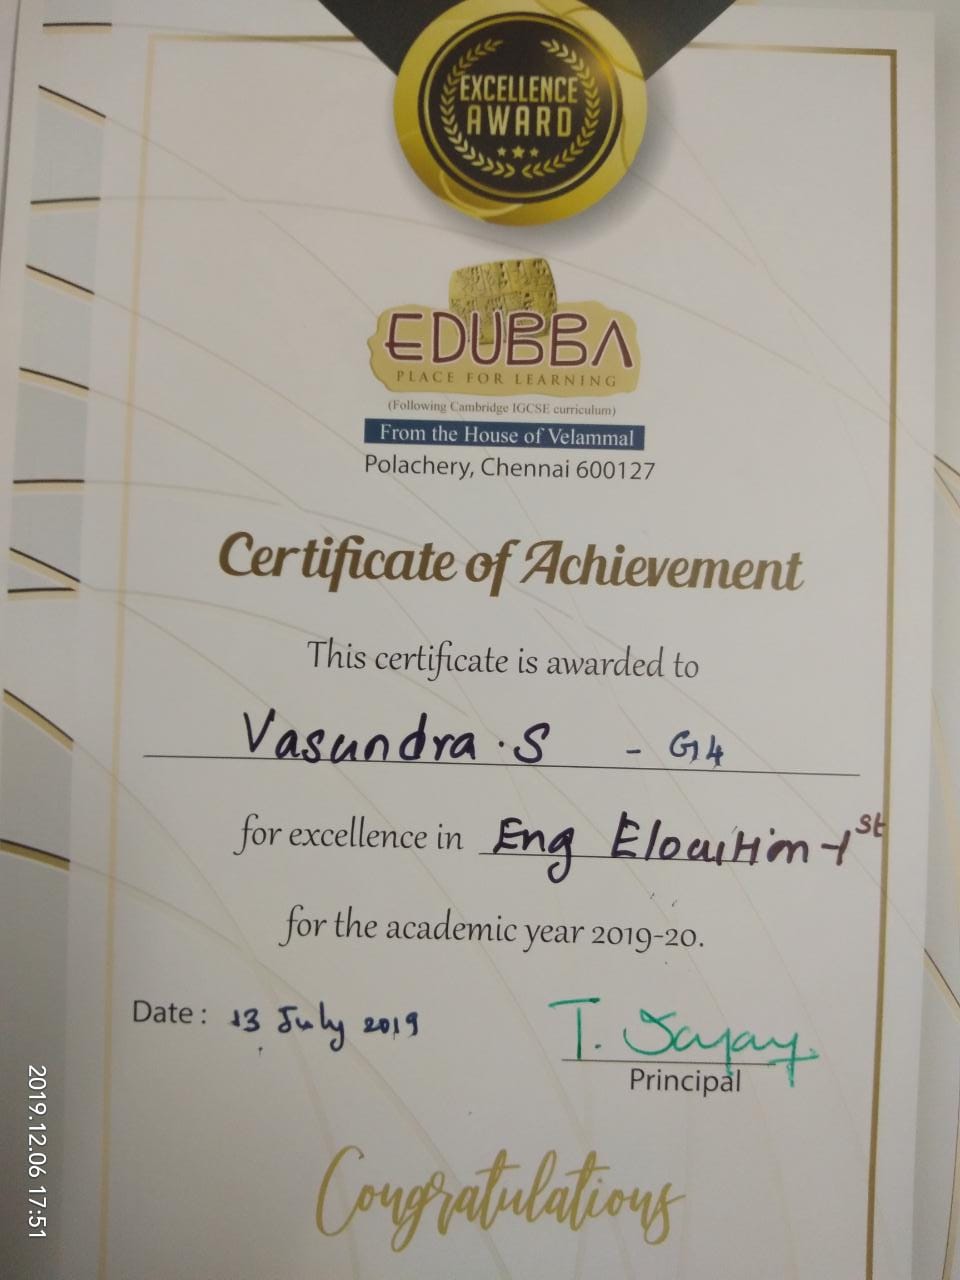 EXCELLENCE
AWARD
EDUBBA
PLACE FOR LEARNING
(Following Cambridge IGCSE curriculum)
From the House of Velammal
Polachery, Chennai 600127
Certificate of Achievement
This certificate is awarded to
Vasundra.S - G4
for excellence in Eng Elocution-1st
for the academic year 2019-20.
Date: 13 July 2019
T.
Principal
Congratulations
2019.12.06 17:51